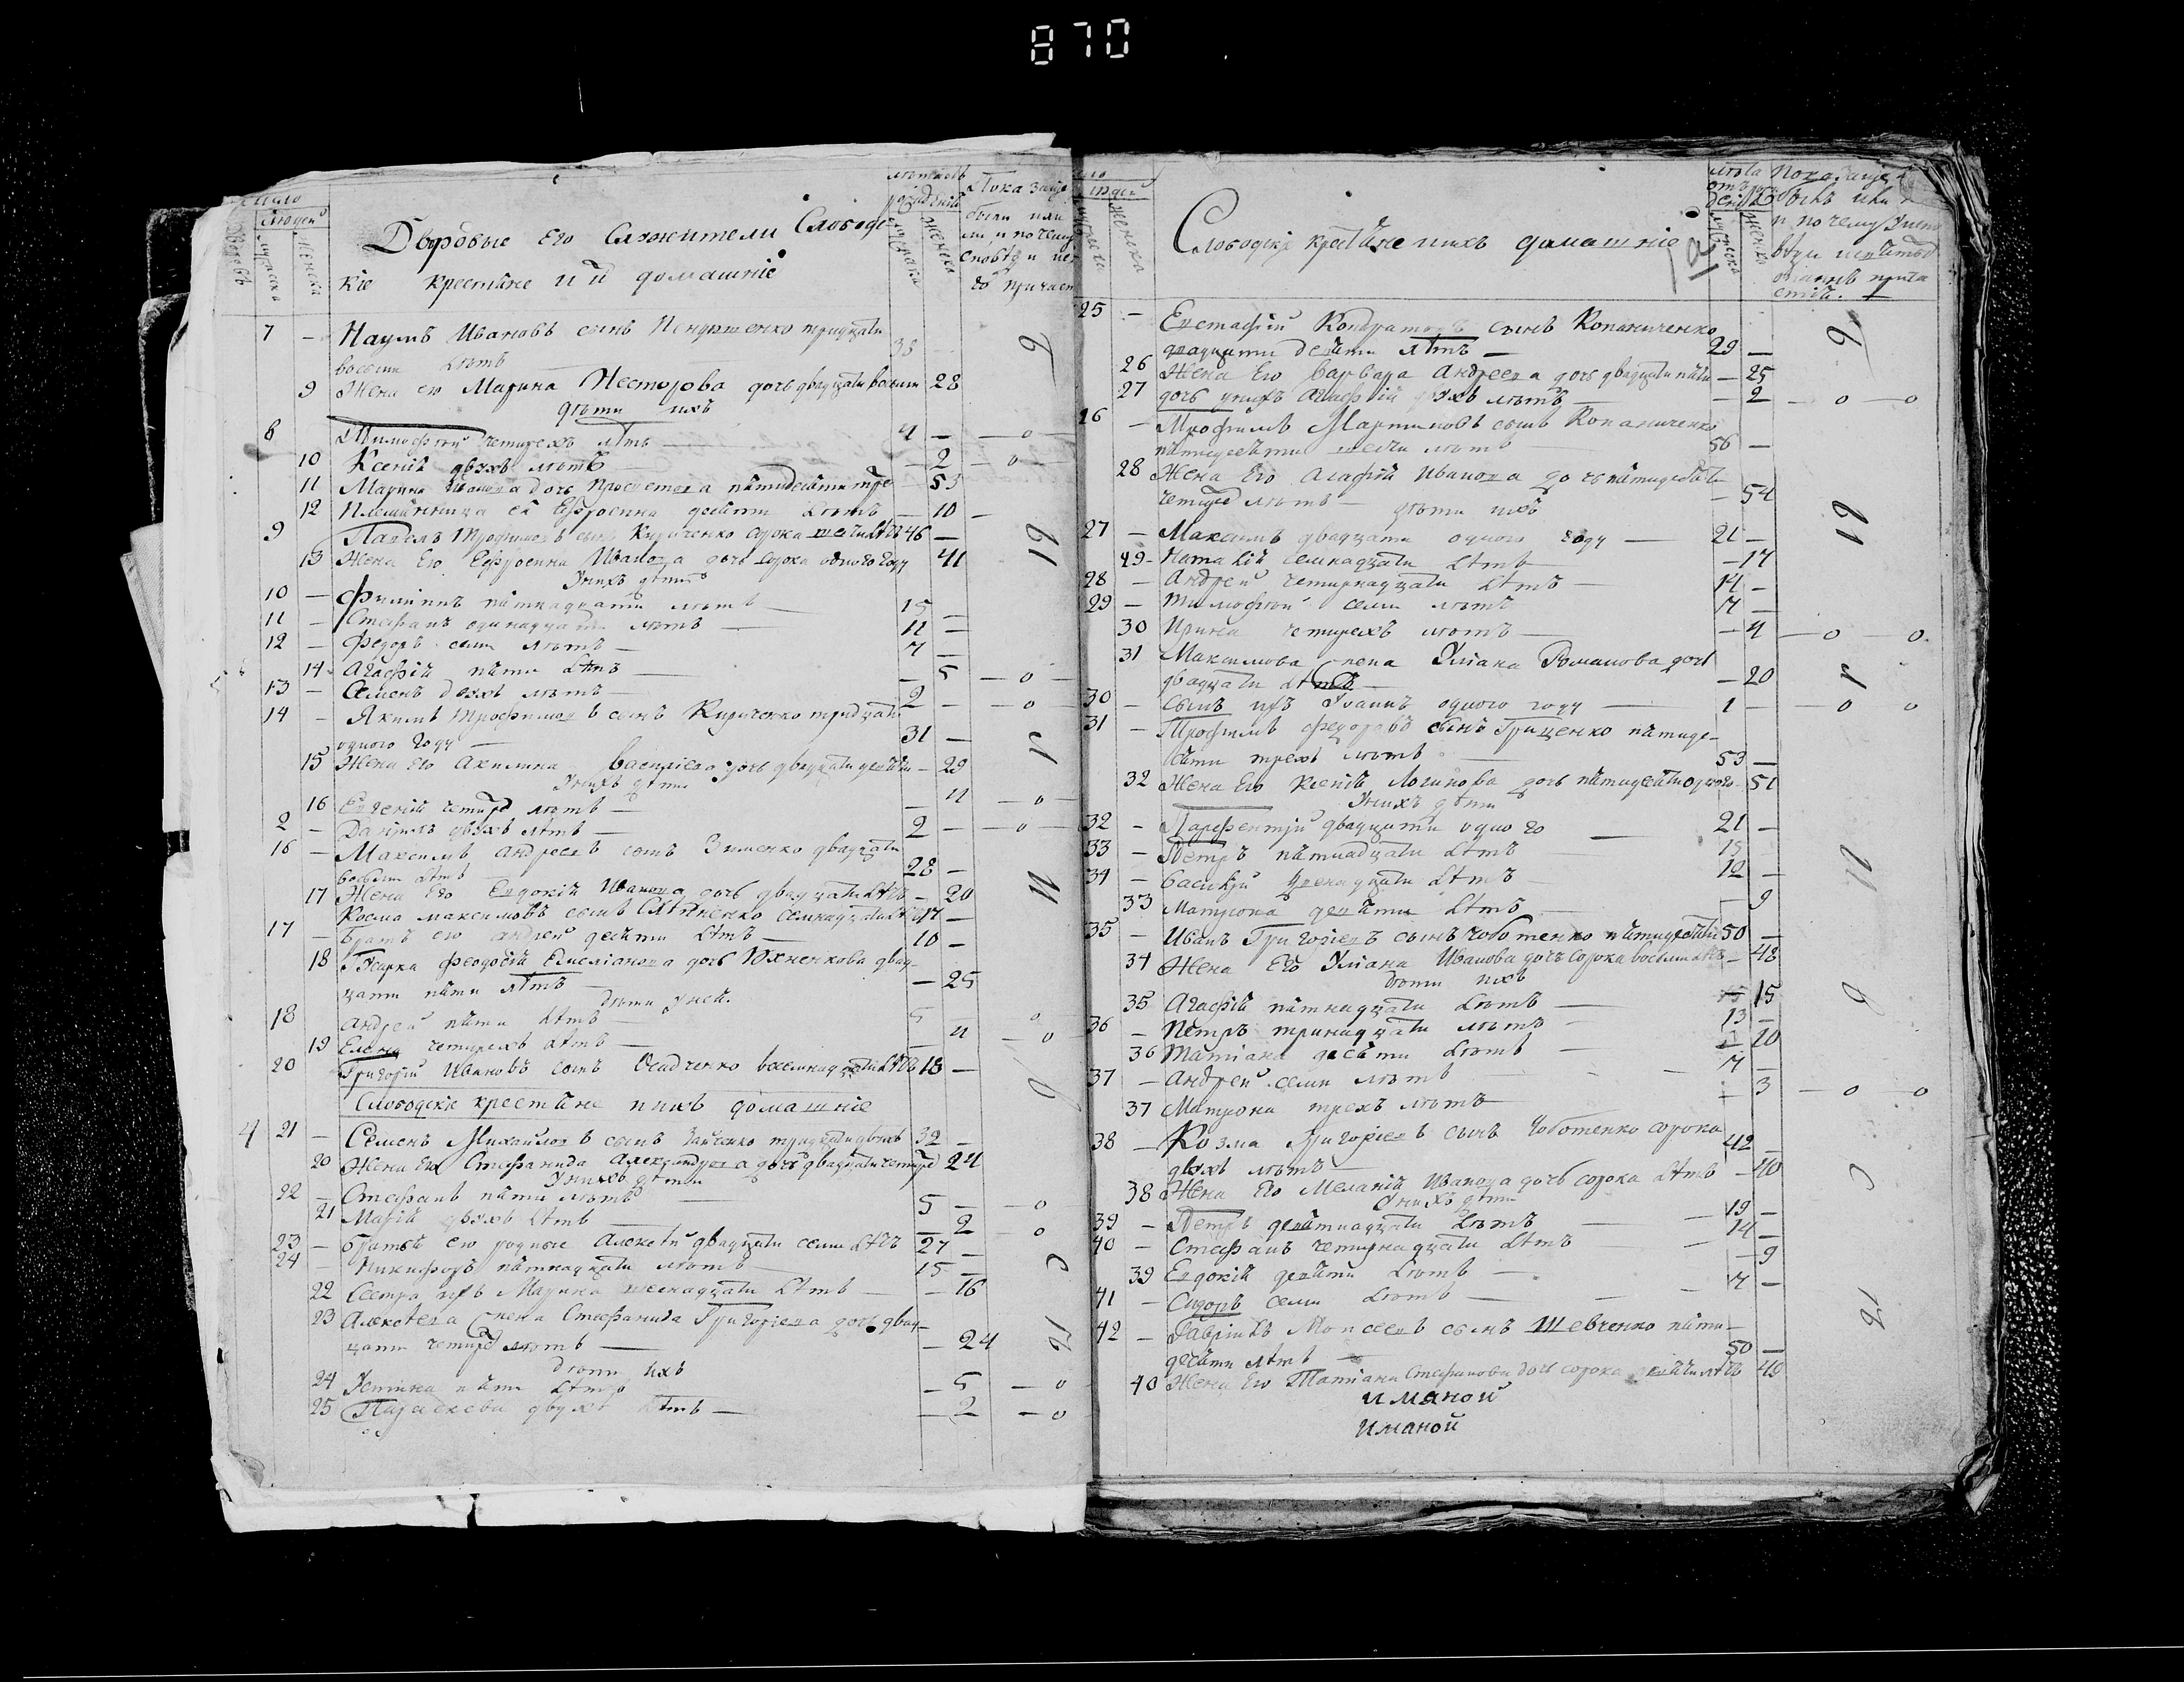 870
число
людей
Дворовъ
мужеска
женска
Дворовые его служители Слободс
кіе крестяне и и домашніе
мужеска
женска
Показаніе
были или
7 — Наумъ Ивановъ сынъ тридцати
восьми лѣтъ — 38
9 Жена его Марина Несторова дочь двадцати восьми 28
дѣти ихъ
8 Тимофей четирехъ лѣтъ — 4 — — о —
10 Ксенія двухъ лѣтъ — 2 — о —
11 Марина Иванова дочь пятидесяти тре 53
12 Племянница ея Ефросина десяти лѣтъ — 10 —
9 Павелъ Трофимовъ сынъ Кириченко сорока шести лѣтъ 46 —
13 Жена Его Ефросина Иванова дочь сорока одного году 41
У нихъ дѣти
10 — Филипъ пятнадцати лѣтъ — 15 —
11 — Стефанъ одинадцати лѣтъ — 11 —
12 — Федоръ семи лѣтъ — 7 —
14 Агафія пяти лѣтъ — 5 — о —
13 — Семенъ двухъ лѣтъ 2 — — о
14 — Якимъ Трофимовъ сынъ Кириченко тридцати
одного году — 31 —
15 Жена Его Акилина Василіева дочь двадцати девяти — 29
У нихъ дѣти
16 Евгенія четире лѣтъ — — 4 — о —
2 — Даніилъ двухъ лѣтъ — 2 — — о —
16 — Максимъ Андреевъ сынъ Зименко двадцати
восьми лѣтъ 28 —
17 Жена Его Евдокія Иванова дочь двадцати лѣтъ — 20
Косма Максимовъ сынъ семнадцати лѣтъ 17 —
17 — Братъ его Андрей десяти лѣтъ — 10 —
18 Феодосія Емеліанова дочь Юхненкова двад-
цати пяти лѣтъ — — 25
дѣти у ней
18 Андрей пяти лѣтъ — 5 — о
19 Елена четирехъ лѣтъ — 4 — о
20 Григорій Ивановъ сынъ Осадченко восемнадцати лѣтъ 18 —
Слободскіе крестяне и ихъ домашніе
4 21 — Семенъ Михайловъ сынъ Заиченко тридцати двохъ 32 —
20 Жена Его Стефанида Александрова дочь двадцати четире 24
У нихъ дѣти
22 — Стефанъ пяти лѣтъ 5 — — о
21 Марія двухъ лѣтъ — 2 — о
23 — Братья его родные Алексѣй двадцати семи лѣтъ 27 —
24 — Никифоръ пятнадцати лѣтъ — 15 —
22 Сестра ихъ Марина шеснадцати лѣтъ — — 16
23 Алексѣева жена Стефанида Григоріева дочь двад-
цати четире лѣтъ — — 24
дѣти ихъ
24 Устина пяти лѣтъ — 5 — о
25 Параскева двухъ лѣтъ — — 2 — о
женска
Слободскіе крестяне и ихъ домашніе
12
мужеска
женска
25 — Евстафій Кондратовъ сынъ Копаниченко
двадцати девяти лѣтъ — 29 —
26 Жена Его Варвара Андреева дочь двадцати пяти — 25
27 дочь у нихъ Агафія двухъ лѣтъ — — 2 — о — о
26 — Трофимъ Мартиновъ сынъ Копаниченко
пятидесяти шести лѣтъ 56 —
28 Жена Его Агафія Иванова дочь пятидесяти
четире лѣтъ — — 54
дѣти ихъ
27 — Максимъ двадцати одного году — 21 —
29 — Наталія семнадцати лѣтъ — 17
28 — Андрей четирнадцати лѣтъ — 14 —
29 — Тимофей семи лѣтъ 7 —
30 Ирина четирехъ лѣтъ — — 4 — о — о
31 Максимова жена Уліана Романова дочь
двадцати лѣтъ — — 20
30 — Сынъ ихъ Іоаннъ одного году — 1 — — о — о
31 — Трофимъ Федоровъ сынъ Гриценко пятиде-
сяти трехъ лѣтъ 53 —
32 Жена Его Ксенія Логинова дочь пятидесяти одного 51
У нихъ дѣти
32 — Парфентій двадцати одного — 21 —
33 — Петръ пятнадцати лѣтъ — 15
34 — Василій двенадцати лѣтъ — 12 —
33 Матрона девяти лѣтъ — — 9
35 — Иванъ Григоріевъ сынъ Чоботенко пятидесяти 50 —
34 Жена Его Уліана Иванова дочь сорока восьми лѣтъ — 48
дѣти ихъ
35 Агафія пятнадцати лѣтъ — 15
36 — Петръ тринадцати лѣтъ — 13 —
36 Татіана десяти лѣтъ — 10
37 — Андрей семи лѣтъ — 7 —
37 Матрона трехъ лѣтъ — 3 — о — о
38 — Козма Григоріевъ сынъ Чоботенко сорока
двухъ лѣтъ — 42 —
38 Жена Его Меланія Иванова дочь сорока лѣтъ — 40
У нихъ дѣти
39 — Петръ девятнадцати лѣтъ — 19 —
40 — Стефанъ четирнадцати лѣтъ — 14 —
39 Евдокія девяти лѣтъ — — 9
41 — Сидоръ семи лѣтъ — 7 —
42 — Гавріилъ Моисеевъ сынъ Шевченко пяти-
десяти лѣтъ — 50 —
40 Жена Его Татіана Стефанова дочь сорока девяти лѣтъ 49
иманой
иманой